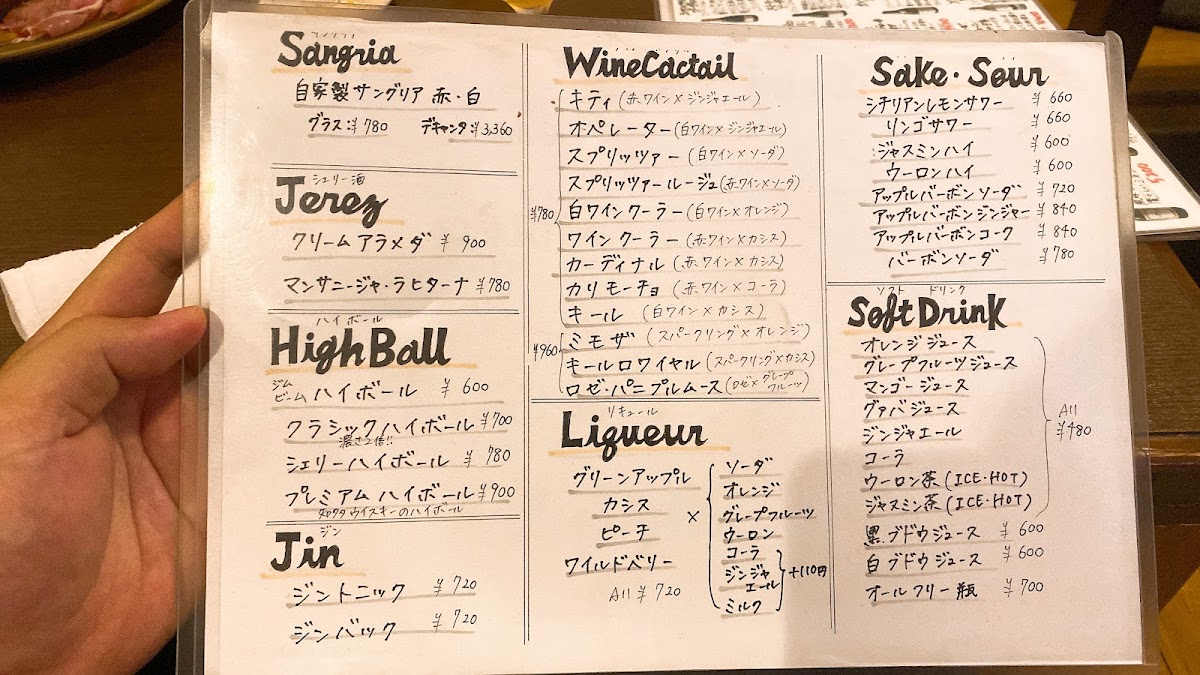 Sangria
サングリア
自家製サングリア 赤・白
グラス:¥780 デキャンタ:¥3,360
シェリー酒
Jerez
クリームアラメダ ¥900
マンサニージャ・ラヒターナ ¥780
ハイボール
HighBall
ジム
ビームハイボール ¥600
クラシックハイボール ¥700
濃さ2倍!!
シェリーハイボール ¥780
プレミアムハイボール ¥900
知多ウイスキーのハイボール
ジン
Jin
ジントニック ¥720
ジンバック ¥720
WineCactail
¥780
キティ(赤ワイン×ジンジャエール)
オペレーター(白ワイン×ジンジャエール)
スプリッツァー(白ワイン×ソーダ)
スプリッツァールージュ(赤ワイン×ソーダ)
白ワインクーラー(白ワイン×オレンジ)
ワインクーラー(赤ワイン×カシス)
カーディナル(赤ワイン×カシス)
カリモーチョ(赤ワイン×コーラ)
キール(白ワイン×カシス)
¥960
ミモザ(スパークリング×オレンジ)
キールロワイヤル(スパークリング×カシス)
ロゼ・パニプルムース(ロゼ×グレープフルーツ)
リキュール
Liqueur
グリーンアップル
カシス
ピーチ
ワイルドベリー
All ¥720
×
ソーダ
オレンジ
グレープフルーツ
ウーロン
コーラ
ジンジャ
エール
+110円
ミルク
Sake・Sour
シチリアンレモンサワー ¥660
リンゴサワー ¥660
ジャスミンハイ ¥600
ウーロンハイ ¥600
アップルバーボンソーダ ¥720
アップルバーボンジンジャー ¥840
アップルバーボンコーク ¥840
バーボンソーダ ¥780
ソフト ドリンク
Soft Drink
オレンジジュース
グレープフルーツジュース
マンゴージュース
グァバジュース
ジンジャエール
コーラ
ウーロン茶(ICE・HOT)
ジャスミン茶(ICE・HOT)
All
¥480
黒ブドウジュース ¥600
白ブドウジュース ¥600
オールフリー瓶 ¥700